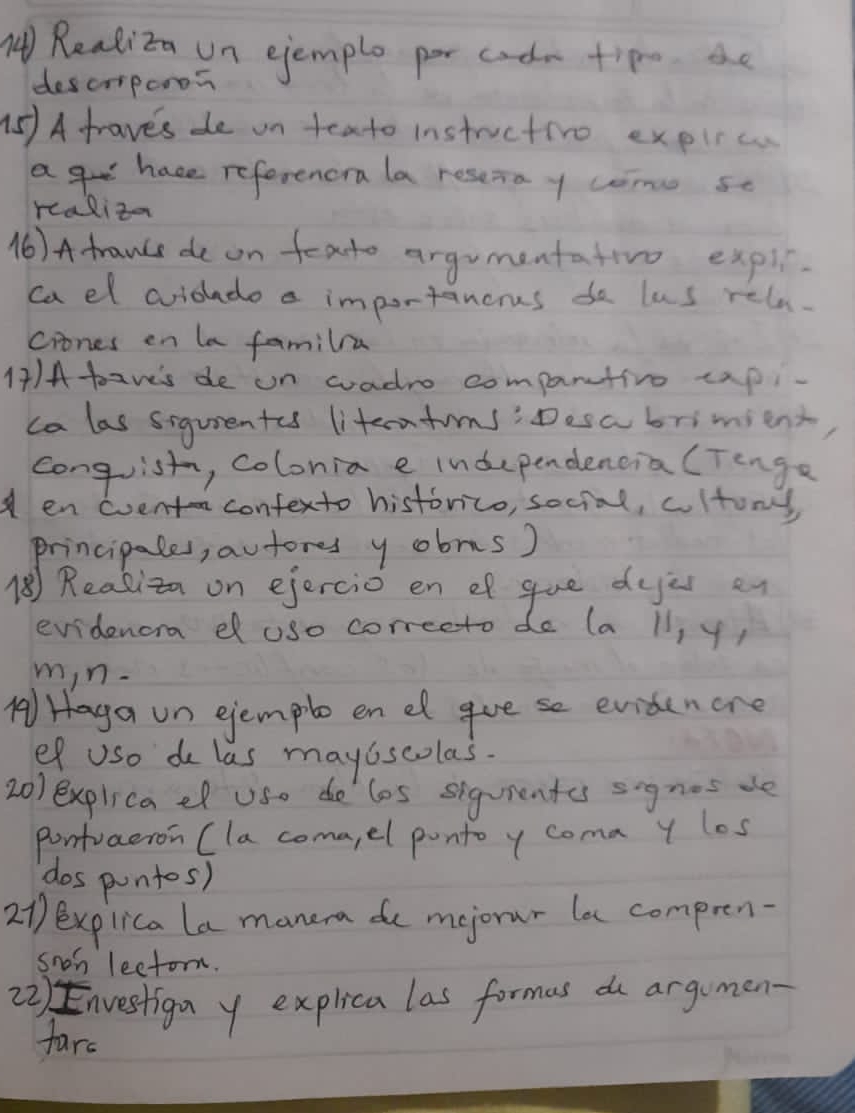 14) Realiza un ejemplo por cada tipo de
descripción
15) A través de un texto instructivo explica
a qué hace referencia la reseña y cómo se
realiza
16) A través de un texto argumentativo expli-
ca el cuidado e importancias de las rela-
ciones en la familia
17) A través de un cuadro comparativo expi-
ca las siguientes literaturas: Descubrimiento,
conquista, colonia e independencia (Tenga
en cuenta contexto histórico, social, cultural,
principales, autores y obras)
18) Realiza un ejercio en el que dejes en
evidencia el uso correcto de la ll, y,
m, n.
19) Haga un ejemplo en el que se evidencie
el uso de las mayúscolas.
20) explica el uso de los siguientes signos de
puntuación (la coma, el punto y coma y los
dos puntos)
21) explica la manera de mejorar la compren-
sión lectora.
22) Investiga y explica las formas de argumen-
tar